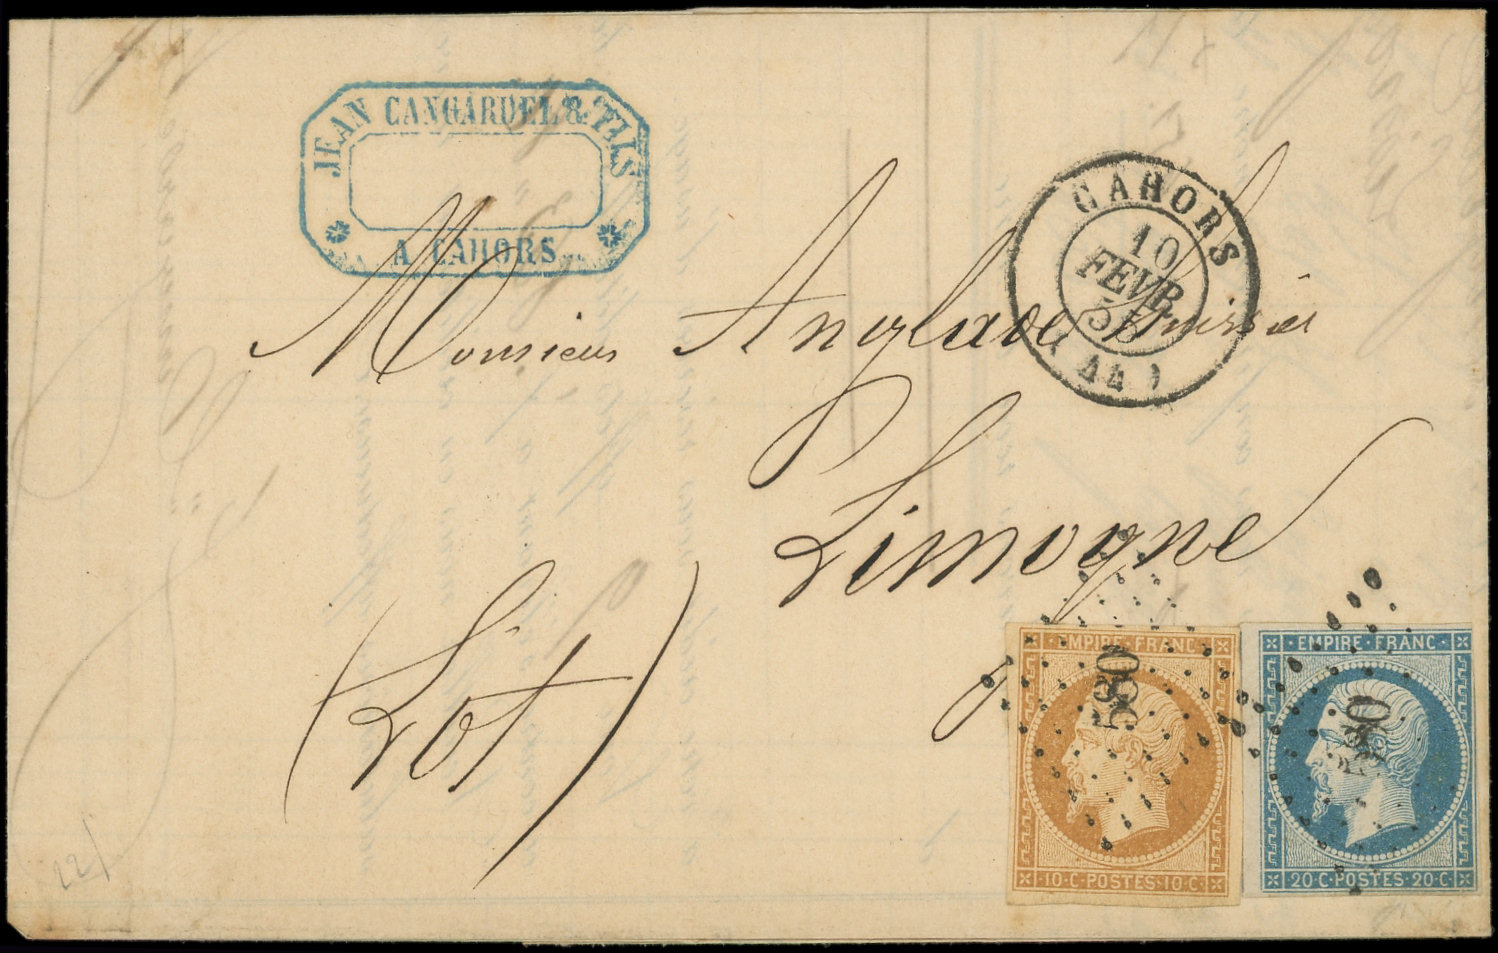 JEAN CANGARDEL & FILS
A CAHORS
CAHORS
10
FEVR
55
(44)
Monsieur Anglade huissier
Limogne
(Lot)
EMPIRE·FRANC
580
10·C·POSTES·10·C
EMPIRE·FRANC
580
20·C·POSTES·20·C
221